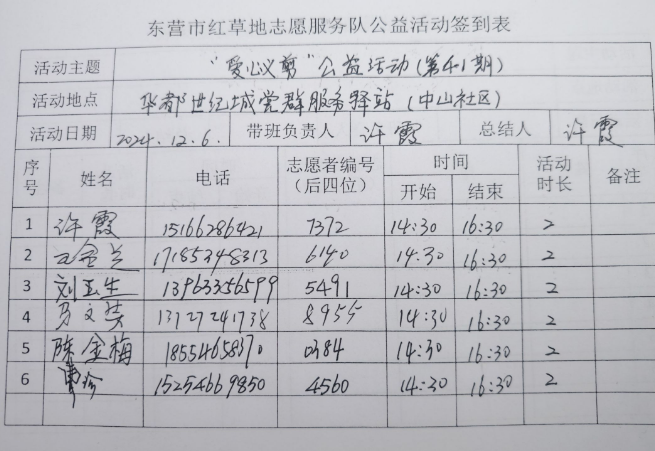 东营市红草地志愿服务队公益活动签到表
活动主题 “爱心义剪”公益活动(第41期)
活动地点 华都世纪城党群服务驿站(中山社区)
活动日期 2024.12.6. 带班负责人 许霞 总结人 许霞
序号 姓名 电话 志愿者编号(后四位) 时间 活动时长 备注
开始 结束
1 许霞 15166286421 7372 14:30 16:30 2
2 王金兰 17185348313 6140 14:30 16:30 2
3 刘玉生 13963356599 5491 14:30 16:30 2
4 文英 13727241738 8955 14:30 16:30 2
5 陈金梅 18554658370 0384 14:30 16:30 2
6 珍 15254669850 4560 14:30 16:30 2